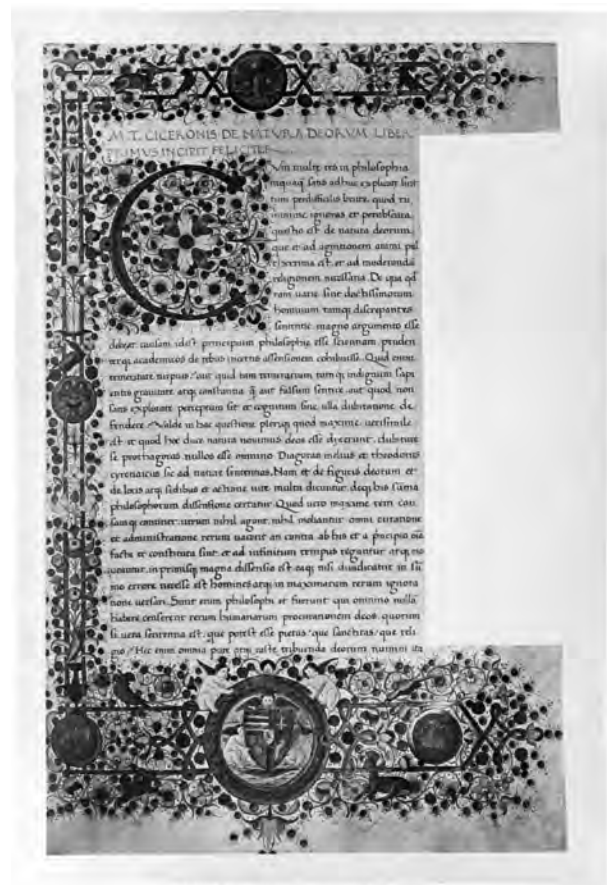 M. T. CICERONIS DE NATVRA DEORVM LIBER
PRIMVS INCIPIT FELICITER
Cum multe res in philosophia
nequaq̃ satis adhuc explicate sint
tum perdifficilis brute quod tu
minime ignoras et perobscura
questio est de natura deorum
que et ad agnitionem animi pul
cherrima est et ad moderandā
religionem necessaria. De qua qd̄
tam uarie sint doctissimorum
hominum tamq̄ discrepantes
sententie magno argumento esse
debeat causam idest principium philosophie esse scientiam pruden
terq; academicos de rebus incertis assensionem cohibuisse. Quid enim
temeritate turpius? aut quid tam temerarium tamq; indignum sapi
entis grauitate atq; constantia q̄ aut falsum sentire aut quod non
satis explorate perceptum sit et cognitum sine ulla dubitatione de
fendere Valde in hac questione pleriq; quod maxime uerisimile
est et quod hoc duce natura nouimus deos esse dixerunt. dubitare
se prothagoras nullos esse omnino Diagoras melius et theodorus
cyrenaicus sic ad nature sententias. Nam et de figuris deorum et
de locis atq; sedibus et actione uite multa dicuntur deq; his sūma
philosophorum dissensione certatur. Quod uero maxime rem cau
samq; continet utrum nihil agant nihil moliantur omni curatione
et administratione rerum uacent an contra ab his et a p̄ncipio oīa
facta et constituta sint et ad infinitum tempus regantur atq; mo
ueantur. in primisq; magna dissensio est eaq; nisi diiudicatur in sū
mo errore necesse est homines atq; in maximarum rerum ignora
tione uersari. Sunt enim philosophi et fuerunt qui omnino nullā
habere censerent rerum humanarum procurationem deos. quorum
si uera sententia est. que potest esse pietas? que sanctitas? que reli
gio? Hec enim omnia pure atq; caste tribuenda deorum numini ita